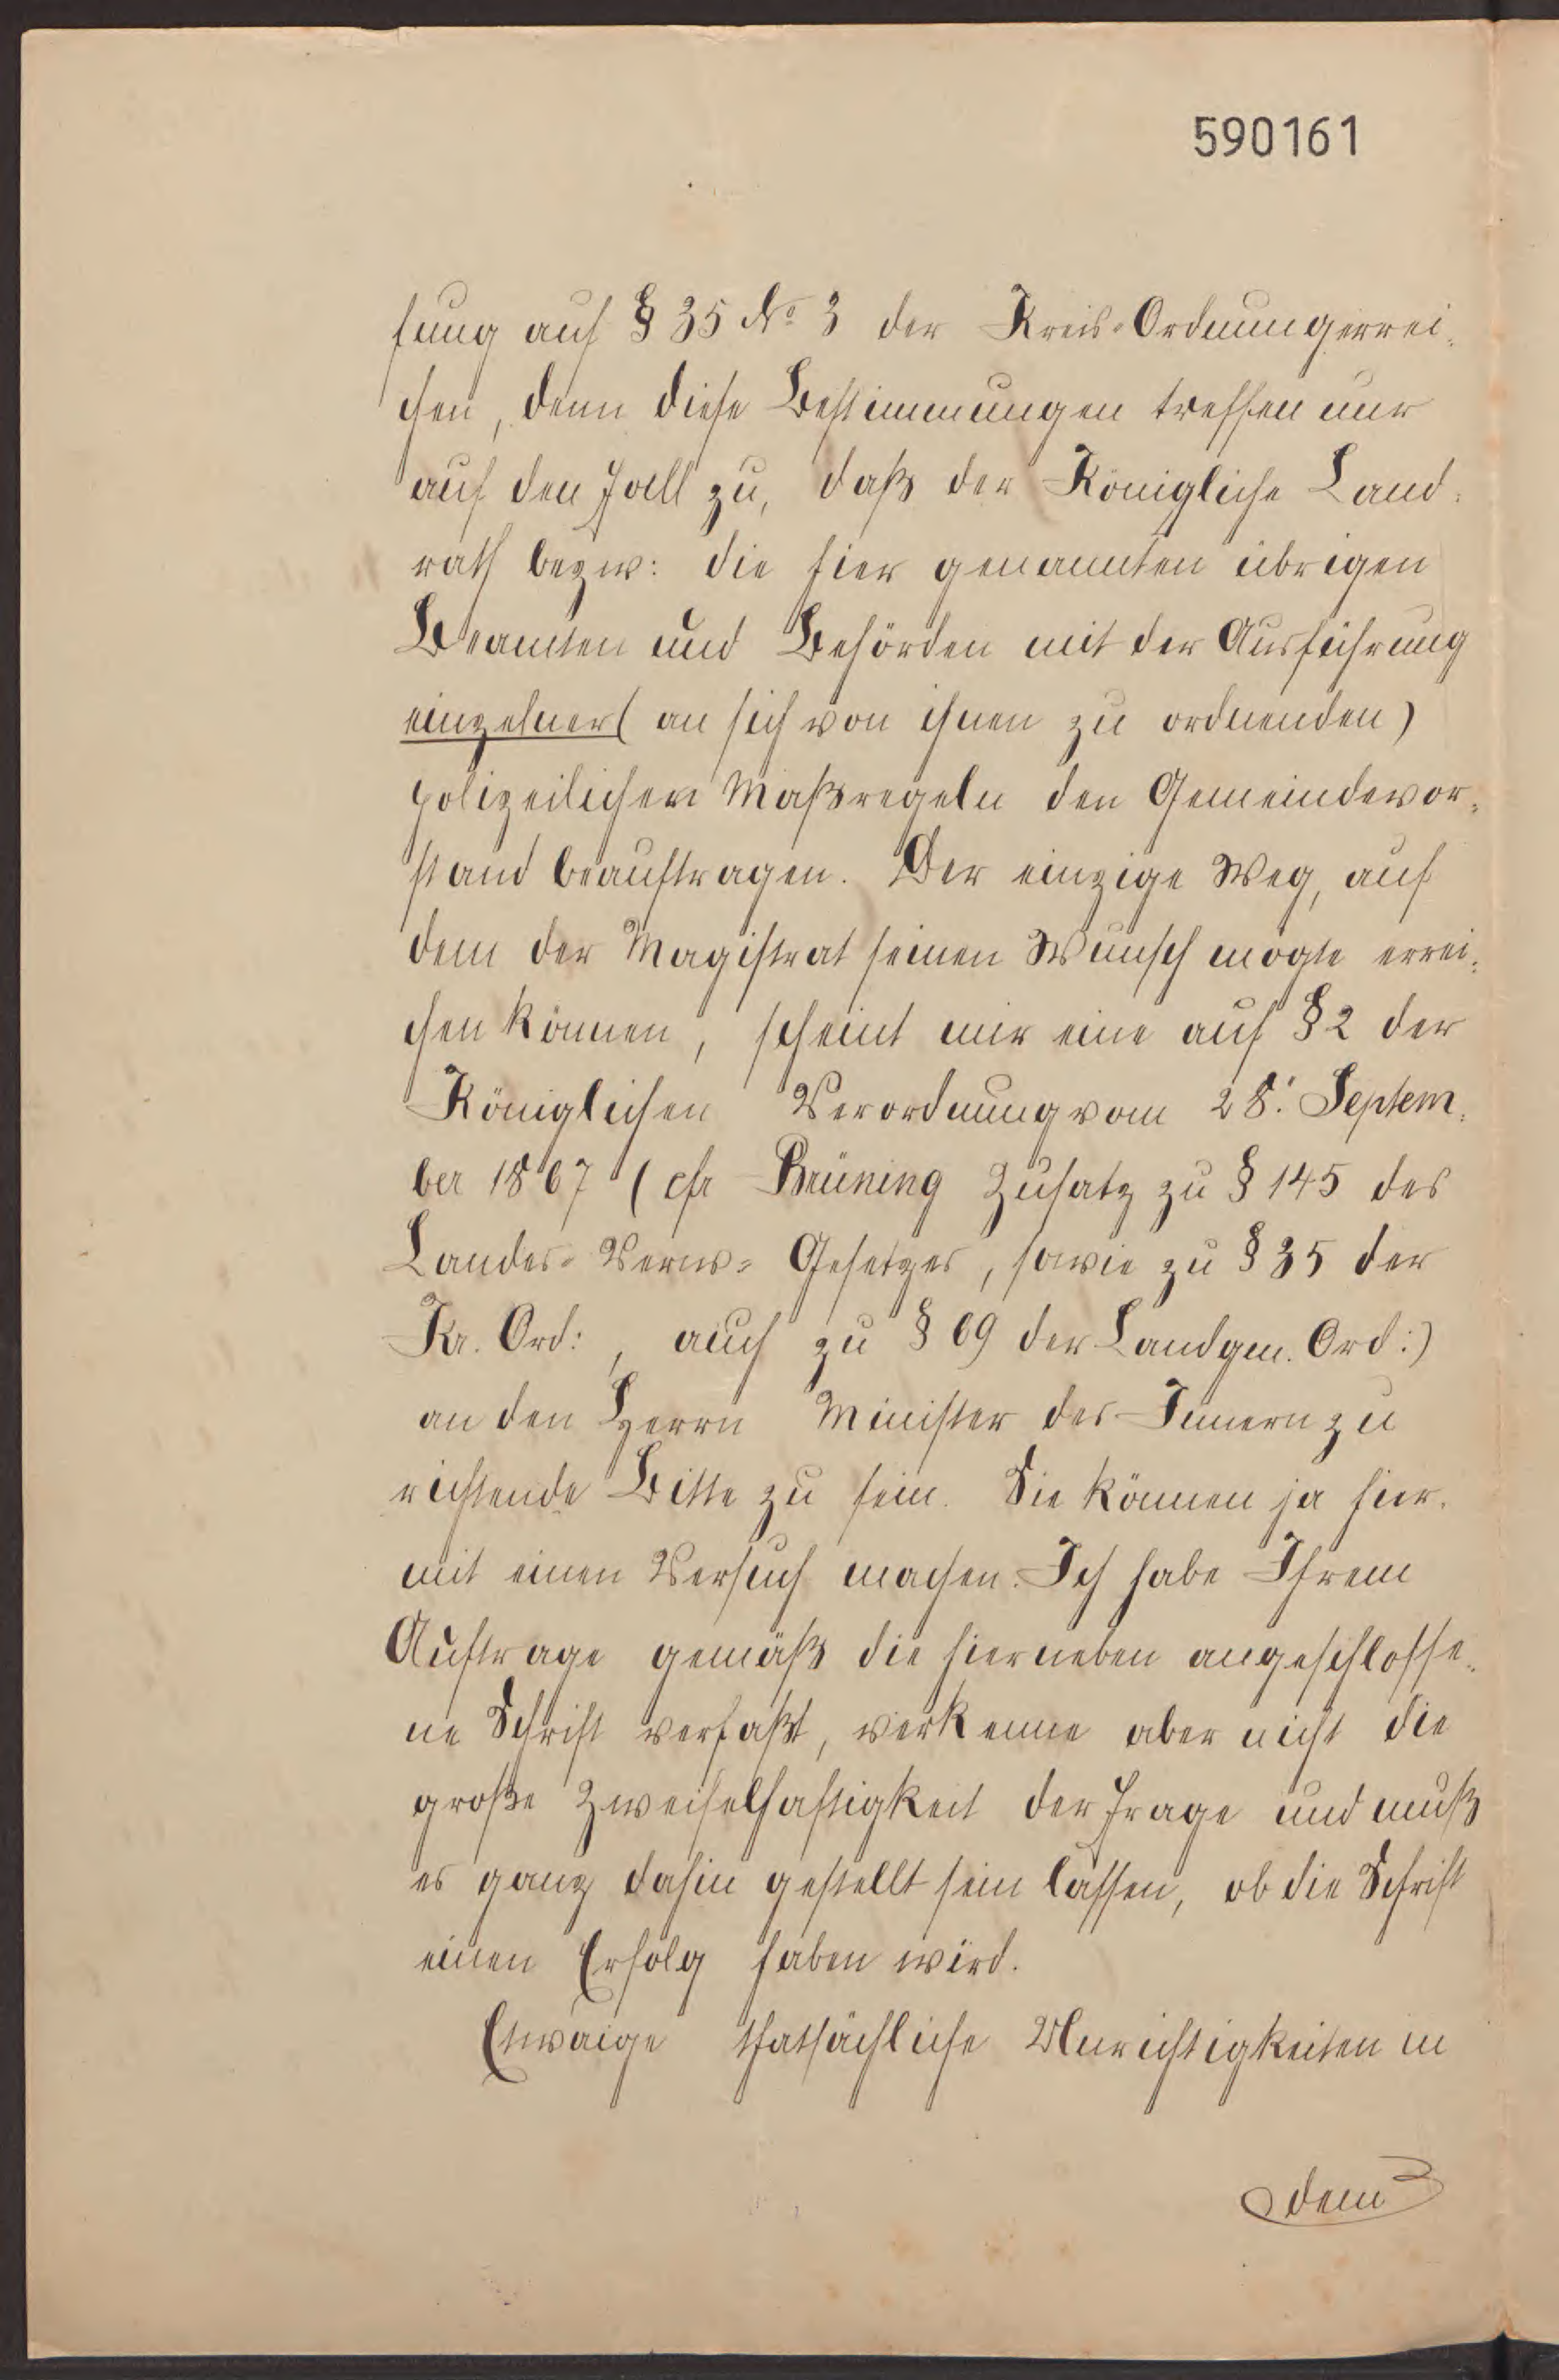 590161
fung auf § 35 No 3 der Kreis-Ordnung errei-
chen, denn diese Bestimmungen treffen nur
auf den Fall zu, daß der Königliche Land-
rath bezw: die hier genannten übrigen
Beamten und Behörden mit der Ausführung
einzelner (an sich von ihnen zu ordnenden)
polizeilichen Maßregeln den Gemeindevor-
stand beauftragen. Der einzige Weg, auf
dem der Magistrat seinen Wunsch mögte errei-
chen können, scheint mir eine auf § 2 der
Königlichen Verordnung vom 28. Septem-
ber 1867 (cfr Brüning Zusatz zu § 145 des
Landes-Verw-Gesetzes, sowie zu § 35 der
Kr. Ord:, auch zu § 69 der Landgem. Ord:)
an den Herrn Minister des Innern zu
richtende Bitte zu sein. Sie können ja hier-
mit einen Versuch machen. Ich habe Ihrem
Auftrage gemäß die hierneben angeschlosse-
ne Schrift verfaßt, verkenne aber nicht die
große Zweifelhaftigkeit der Frage und muß
es ganz dahin gestellt sein lassen, ob die Schrift
einen Erfolg haben wird.
Etwaige thatsächliche Unrichtigkeiten in
dem